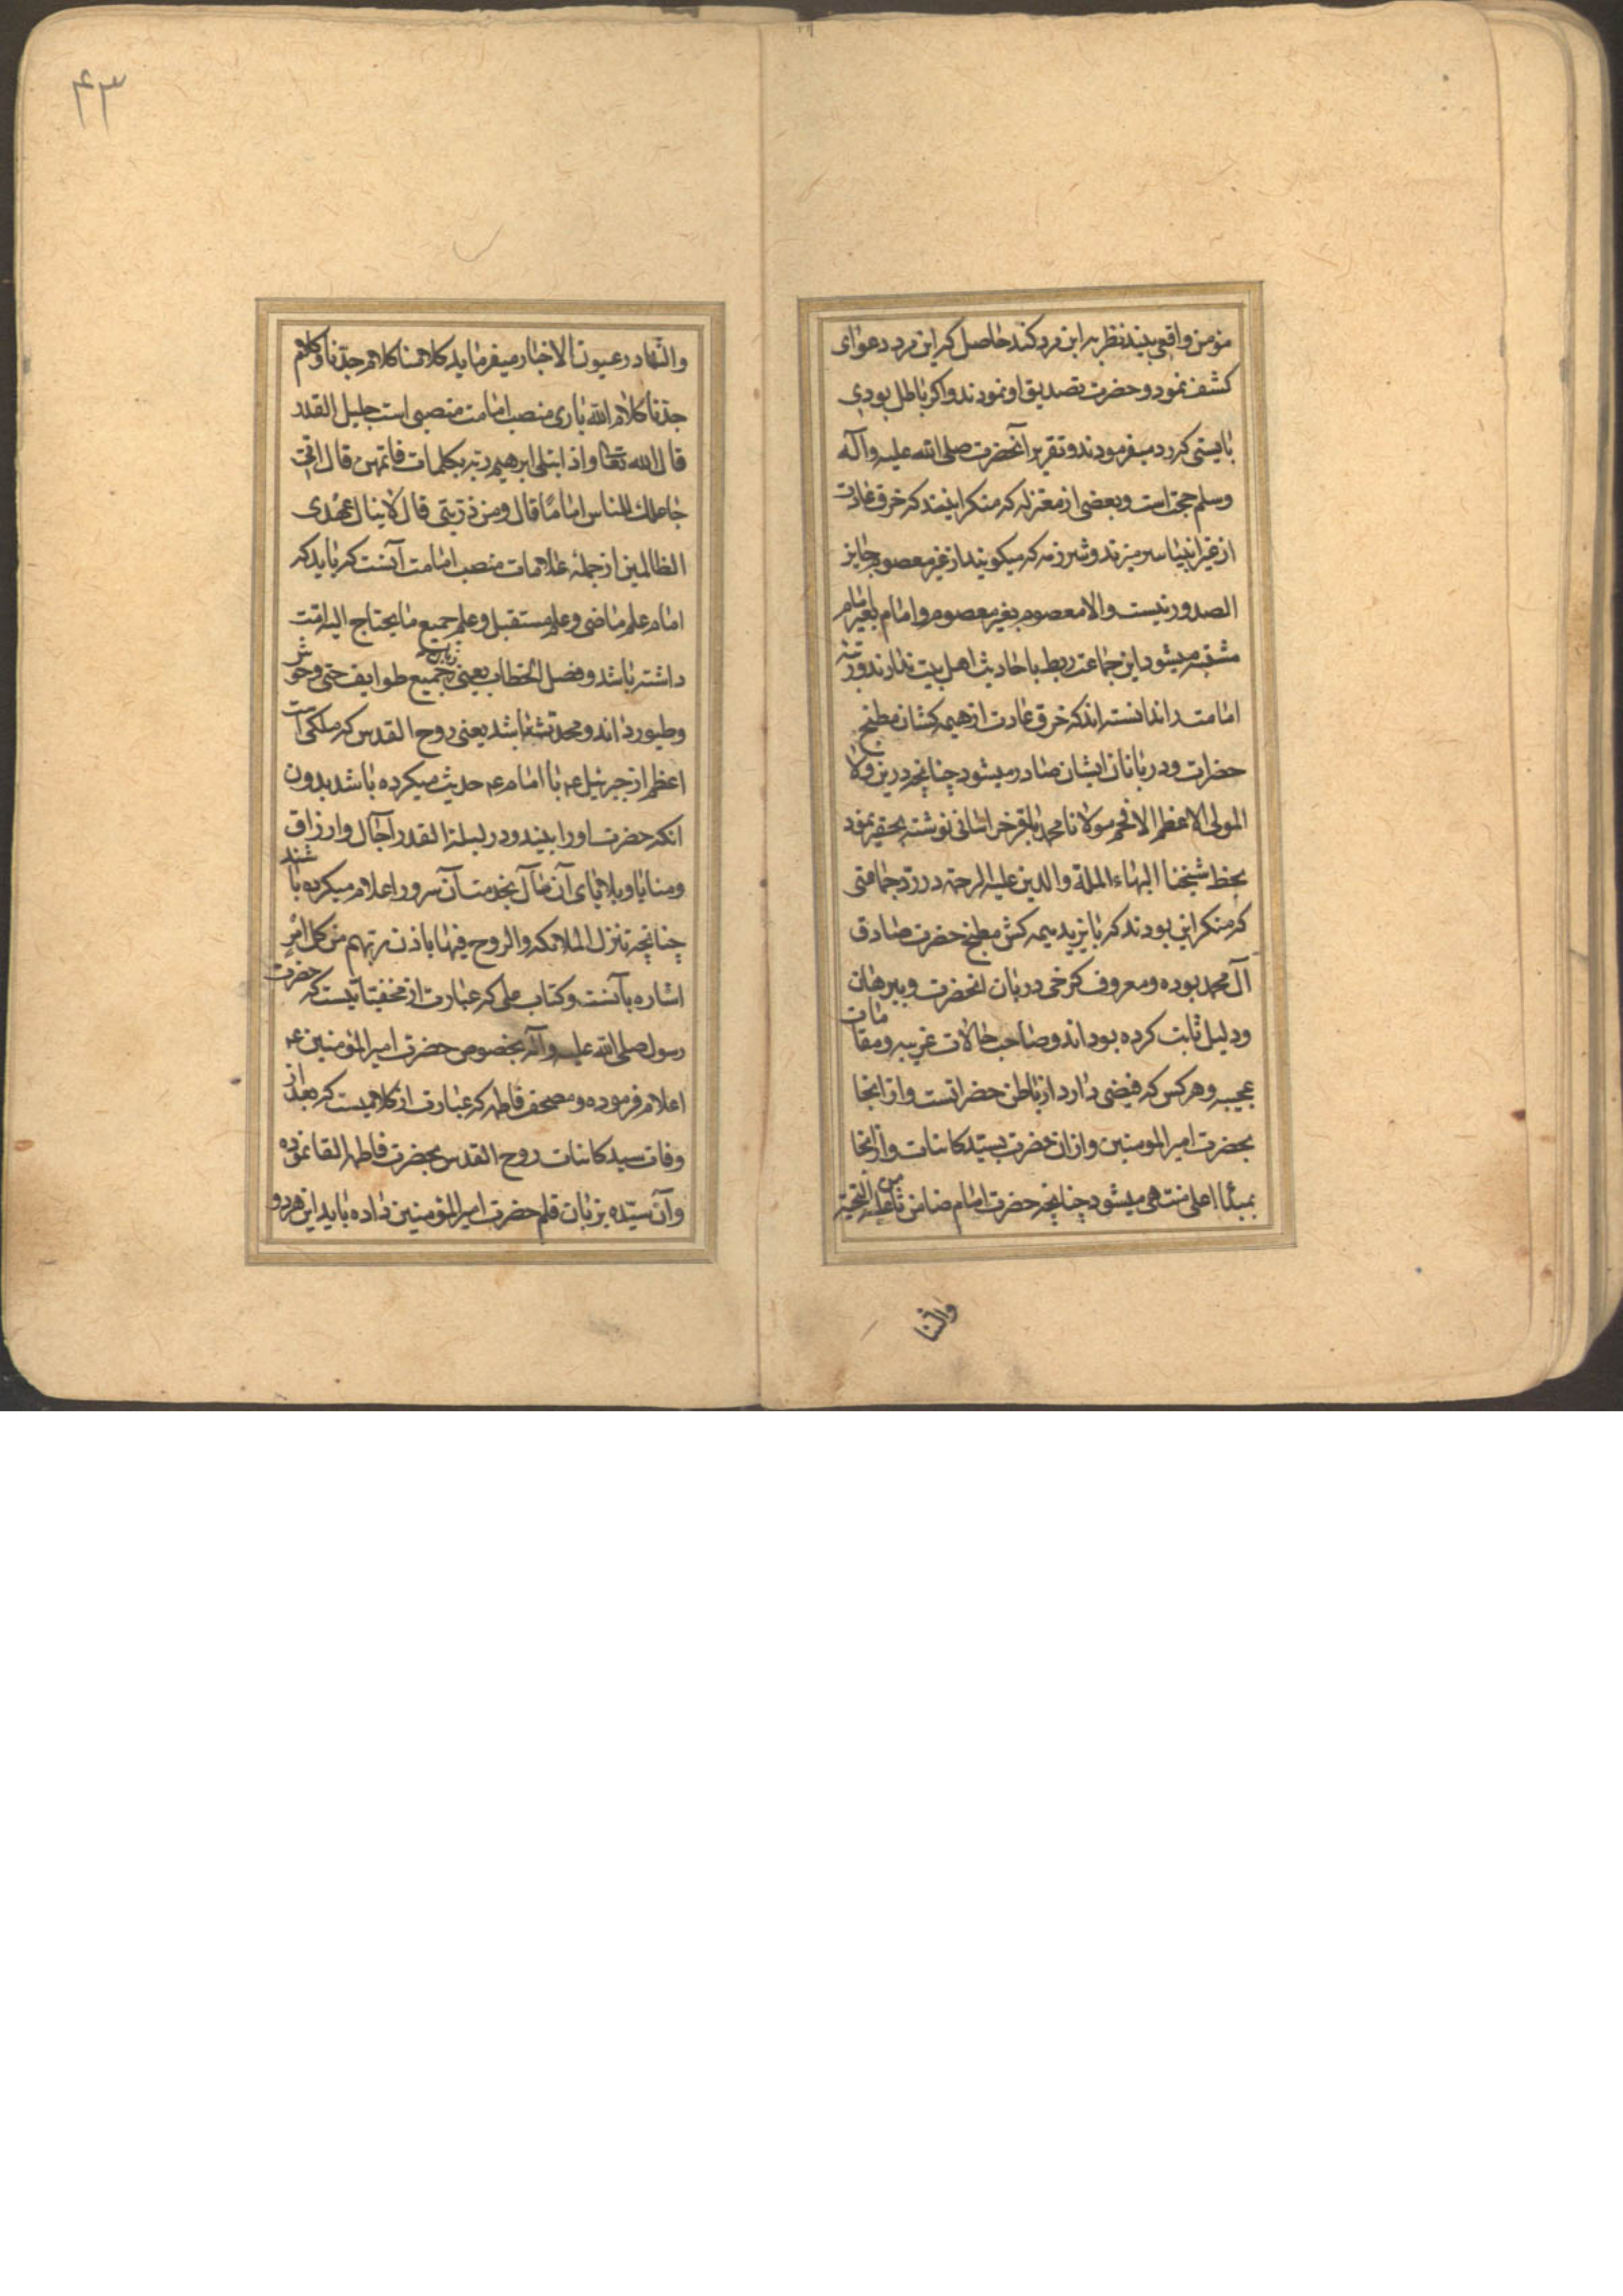 مؤمن واقعی بیند نظر به این مرد کند حاصل که این مرد دعوای
کشف نمود و حضرت تصدیق او نمودند و اکر باطل بودی
بایستی که رد میفرمودند و تقریر آنحضرت صلی الله علیه وآله
وسلم حجة است و بعضی از معتزله که منکر اینند که خرق عادت
از غیر انبیا سر میزند و شرزمه که میکویند از غیر معصوم جایز
الصدور نیست والا معصوم بغیر معصوم و امام بغیر امام
مشتبه میشود این جماعت ربط باحادیث اهل بیت ندارند و رتبه
امامت را ندانسته اند که خرق عادت از هیمه کشان مطبخ
حضرات و دربانان ایشان صادر میشود چنانچه درین ولا
المولی الاعظم الافخم مولانا محمد باقر خراسانی نوشته بحقیر نمود
بخط شیخنا البهاء الملة والدین علیه الرحمة در رد جماعتی
که منکر این بودند که بایزید هیمه کش مطبخ حضرت صادق
آل محمد بوده و معروف کرخی دربان انحضرت و ببرهان
و دلیل ثابت کرده بوداند و صاحب حالات غریبه و مقامات
عجیبه و هر کس که فیضی دارد از باطن حضراتست و از انجا
بحضرت امیر المومنین و از ان حضرت بسید کاینات و از انجا
بمبدأ اعلی منتهی میشود چنانچه حضرت امام ضامن ثامن علیه التحیة
والثنا
۴۳
والثنا در عیون الاخبار میفرماید کلامنا کلام جدنا و کلام
جدنا کلام الله باری منصب امامت منصبی است جلیل القدر
قال الله تعا واذ ابتلی ابرهیم ربه بکلمات فاتمهن قال انی
جاعلک للناس اماما قال ومن ذریتی قال لا ینال عهدی
الظالمین از جمله علامات منصب امامت آنست که باید که
امام علم ماضی و علم مستقبل و علم جمیع ما یحتاج الیه امت
داشته باشد و فصل الخطاب یعنی زبان جمیع طوایف حتی وحوش
و طیور داند و محدث باشد یعنی روح القدس که ملکی است
اعظم از جبرئیل عم با امام عم حدیث میکرده باشد بدون
انکه حضرت او را بیند و در لیلة القدر آجال و ارزاق
و منایا و بلایای آن سال بخدمت آن سرور اعلام میکرده باشند
چنانچه تنزل الملائکه والروح فیها باذن ربهم من کل امر
اشاره بآنست و کتاب علی که عبارت از مخفیاتیست که حضرت
رسول صلی الله علیه وآله بخصوص حضرت امیر المؤمنین عم
اعلام فرموده و مصحف فاطمه که عبارت از کلامیست که بعد از
وفات سید کاینات روح القدس بحضرت فاطمه القا نموده
و آن سیده بزبان قلم حضرت امیر المؤمنین داده باید این هر دو